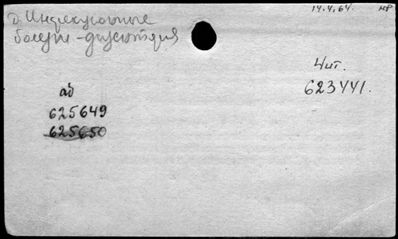 14.4.64.
д. Инфекционные
болезни - дизентерия
Чит.
623441.
аб
625649
625650